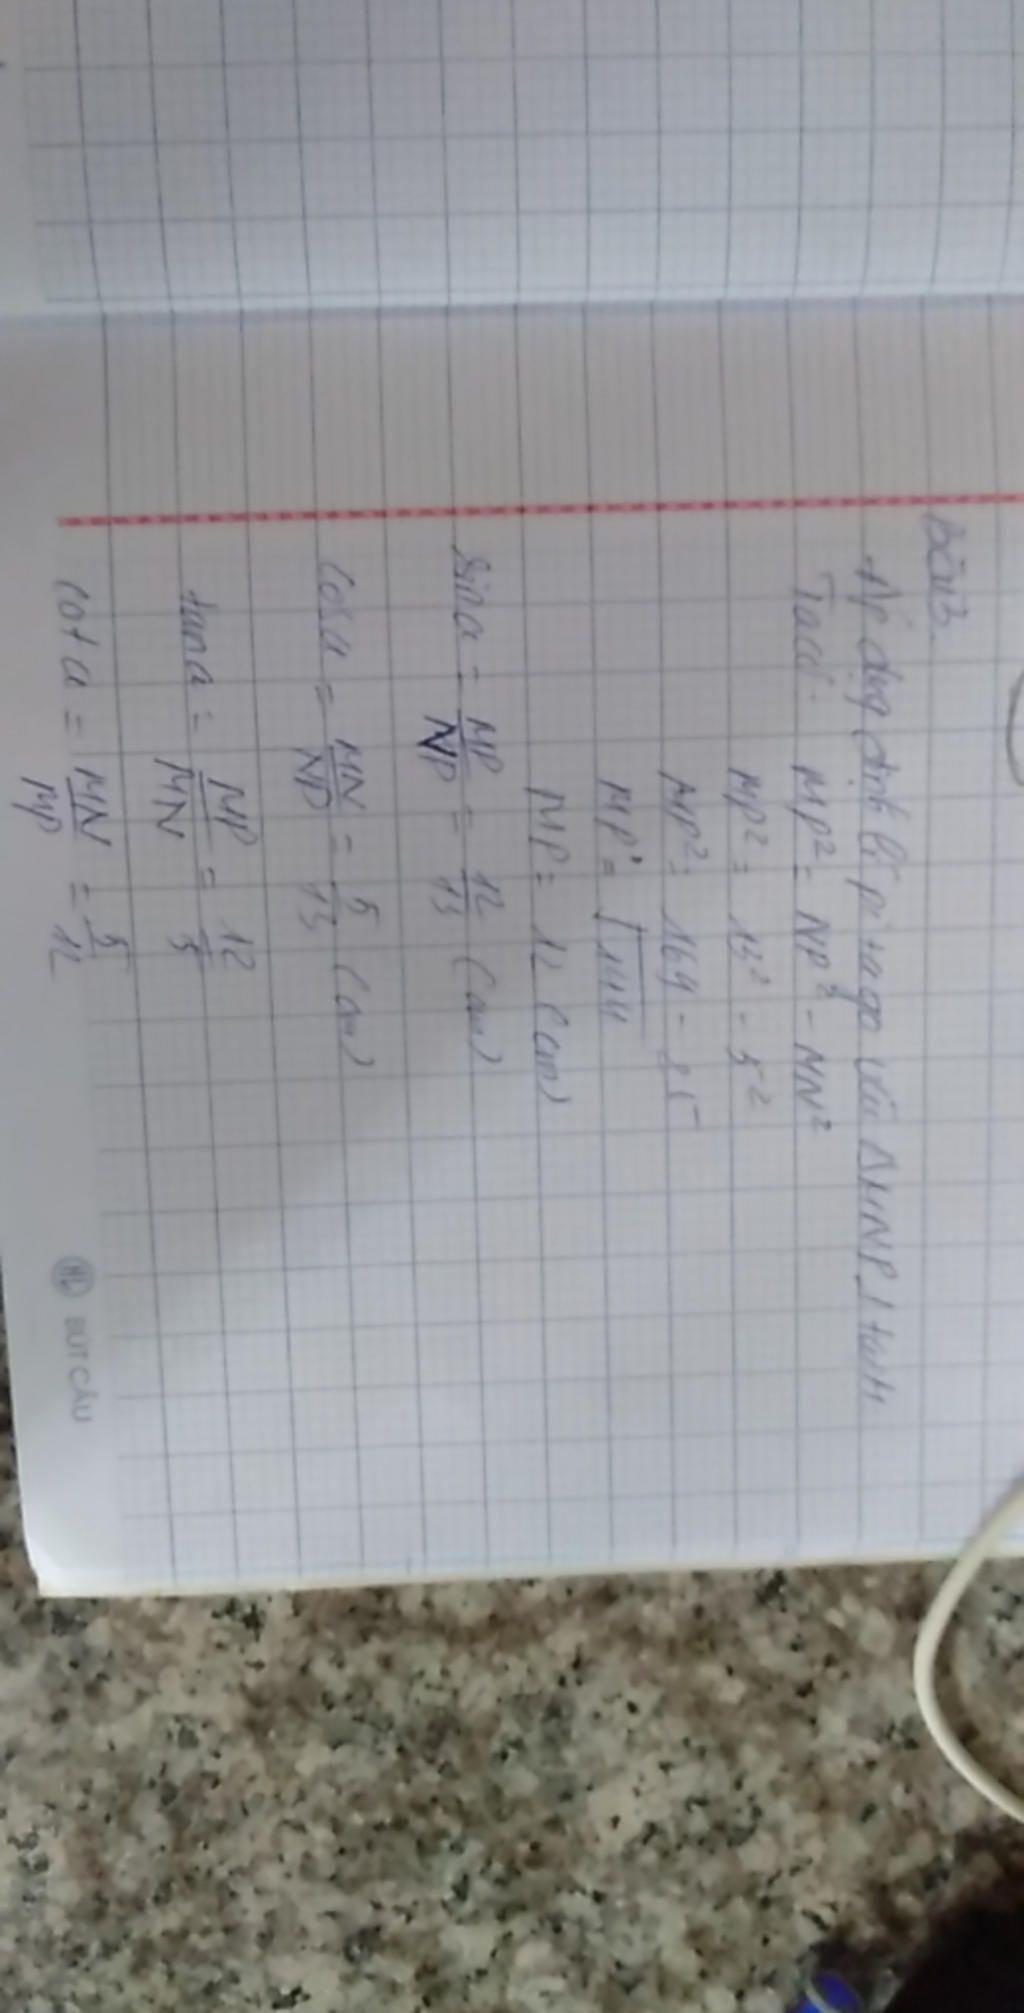 Bài 3.
Áp dụg định lí pi ta go vào ΔMNP ⊥ tại M.
Ta có: MP² = NP² - MN²
MP² = 13² - 5²
MP² = 169 - 25
MP = √144
MP = 12 (cm)
Sin α = MP/NP = 12/13 (cm)
Cos α = MN/NP = 5/13 (cm)
tan α = MP/MN = 12/5
Cot α = MN/MP = 5/12
BÚT CÂU